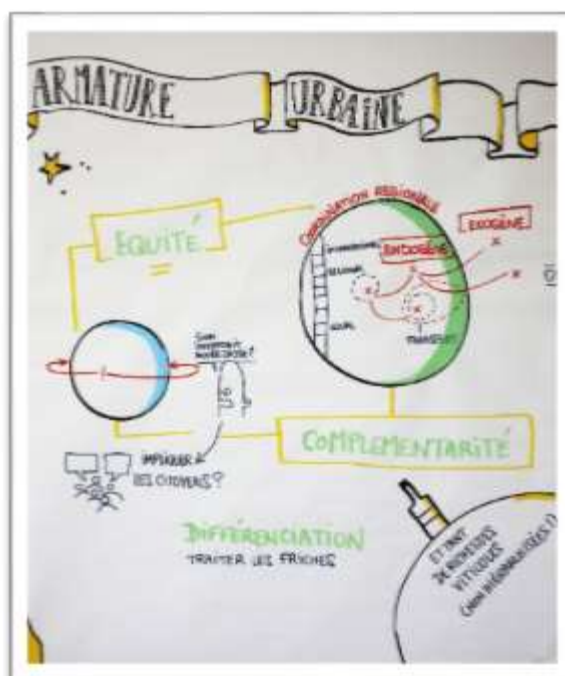 ARMATURE URBAINE
EQUITÉ
COORDINATION REGIONALE
ENDOGÈNE
EXOGÈNE
REGIONAL
LOCAL
TRANSFERT
IMPLIQUER
LES CITOYENS ?
COMPLEMENTARITÉ
DIFFÉRENCIATION
TRAITER LES FRICHES
ET TANT
DE RICHESSES
VITICOLES